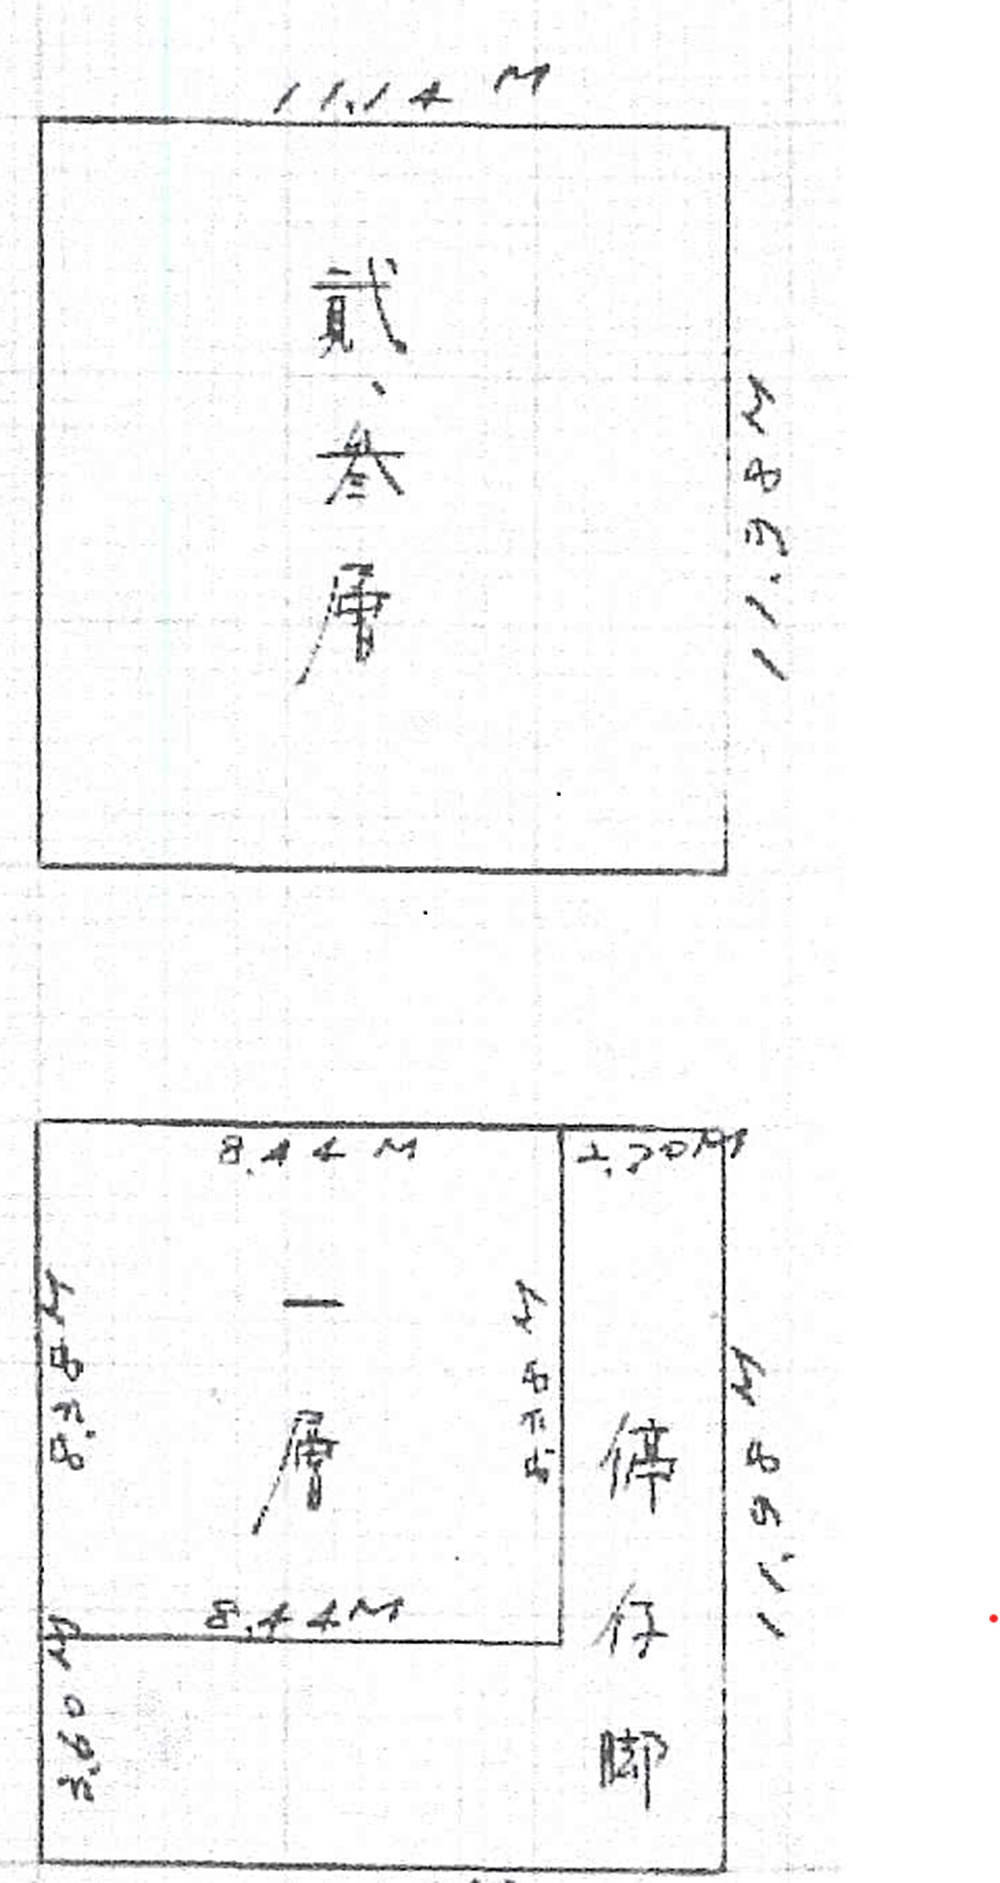 11.14 M
貳、叁層
11.98M
8.44 M
2.70M
8.38M
一層
8.38M
停仔脚
11.98M
8.44M
3.60M